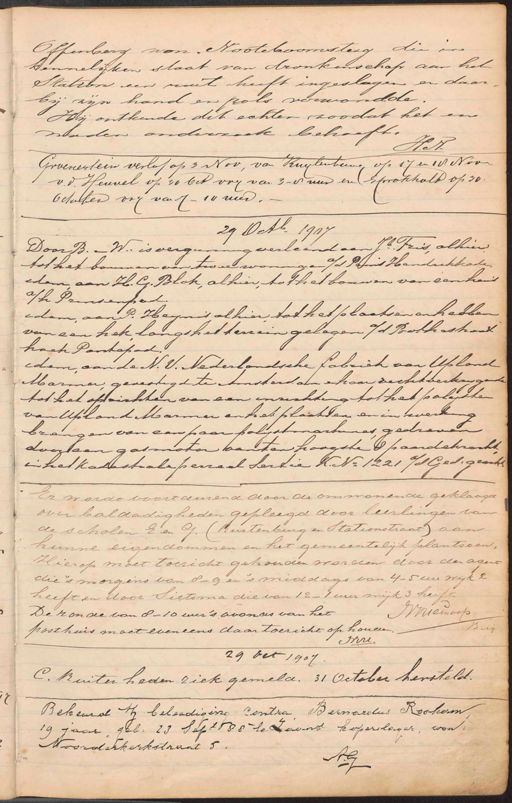 Offenberg van Nooteboomsteeg die in
kennelijken staat van dronkenschap aan het
Station een ruit heeft ingeslagen en daar-
bij zijn hand en pols verwondde.
Hij ontkende dit echter zoodat het een
nader onderzoek behoeft.
Groenestein verlof op 3 Nov, van Kuylenburg op 17 en 18 Nov
v.d. Heuvel op 30 Oct vrij van 3-8 uur en Sprokholt op 30
October vrij van 7-10 uur.
29 Octb. 1907
Door B. en W. is vergunning verleend aan Js. Fris, alhier
tot het bouwen van twee woningen a/d Prins Hendrikkade
idem, aan H. G. Blok, alhier, tot het bouwen van een huis
a/h
idem, aan P. Heynis alhier, tot het plaatsen en hebben
van een hek, langs het terrein gelegen a/d Bothastraat
hoek
idem, aan de N. V. Nederlandsche Fabriek van Upland
Marmer, gevestigd te Amsterdam
tot het oprichten van een inrichting tot het polijsten
van Upland Marmer en het plaatsen en in werking
brengen van een paar polijstmachines, gedreven
door een gasmotor van ten hoogste 6 paardekracht,
in het kadastrale perceel Sectie K No 1221 a/d
Er wordt voortdurend door de omwonende geklaagd
over baldadigheden gepleegd door leerlingen van
de scholen E en J. (Rustenburg en Stationstraat) aan
hunne eigendommen en het gemeentelijk plantsoen.
Hierop moet toezicht gehouden worden door den agent
die 's morgens van 8-9 en 's middags van 4-5 uur wijk 2
heeft en door Sietsma die van 12-1 uur wijk 3 heeft
De ronde van 8-10 uur 's avonds van het
posthuis moet eveneens daar toezicht op houden
29 Oct 1907.
C. Ruiter heden ziek gemeld. 31 October hersteld.
Bekeurd tz beleediging contra Bernardus
19 jaar, geb. 23 Sept 1888 te koperslager, won.
Noorderkerkstraat 5.